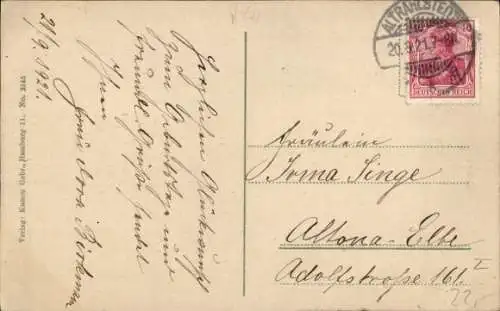 20/9. 1921.
Herzlichen Glückwunsch
zum Geburtstag und
freundl. Grüße sendet
Ihnen
Frau Dora Birkmann
Verlag: Knackstedt Gebr., Hamburg 11. No. 3545
ALTRAHLSTEDT
20.9.21.7-8N
10
DEUTSCHES REICH
Fräulein
Irma Singe
Altona-Elbe
Adolfstroße 161 I
22,-